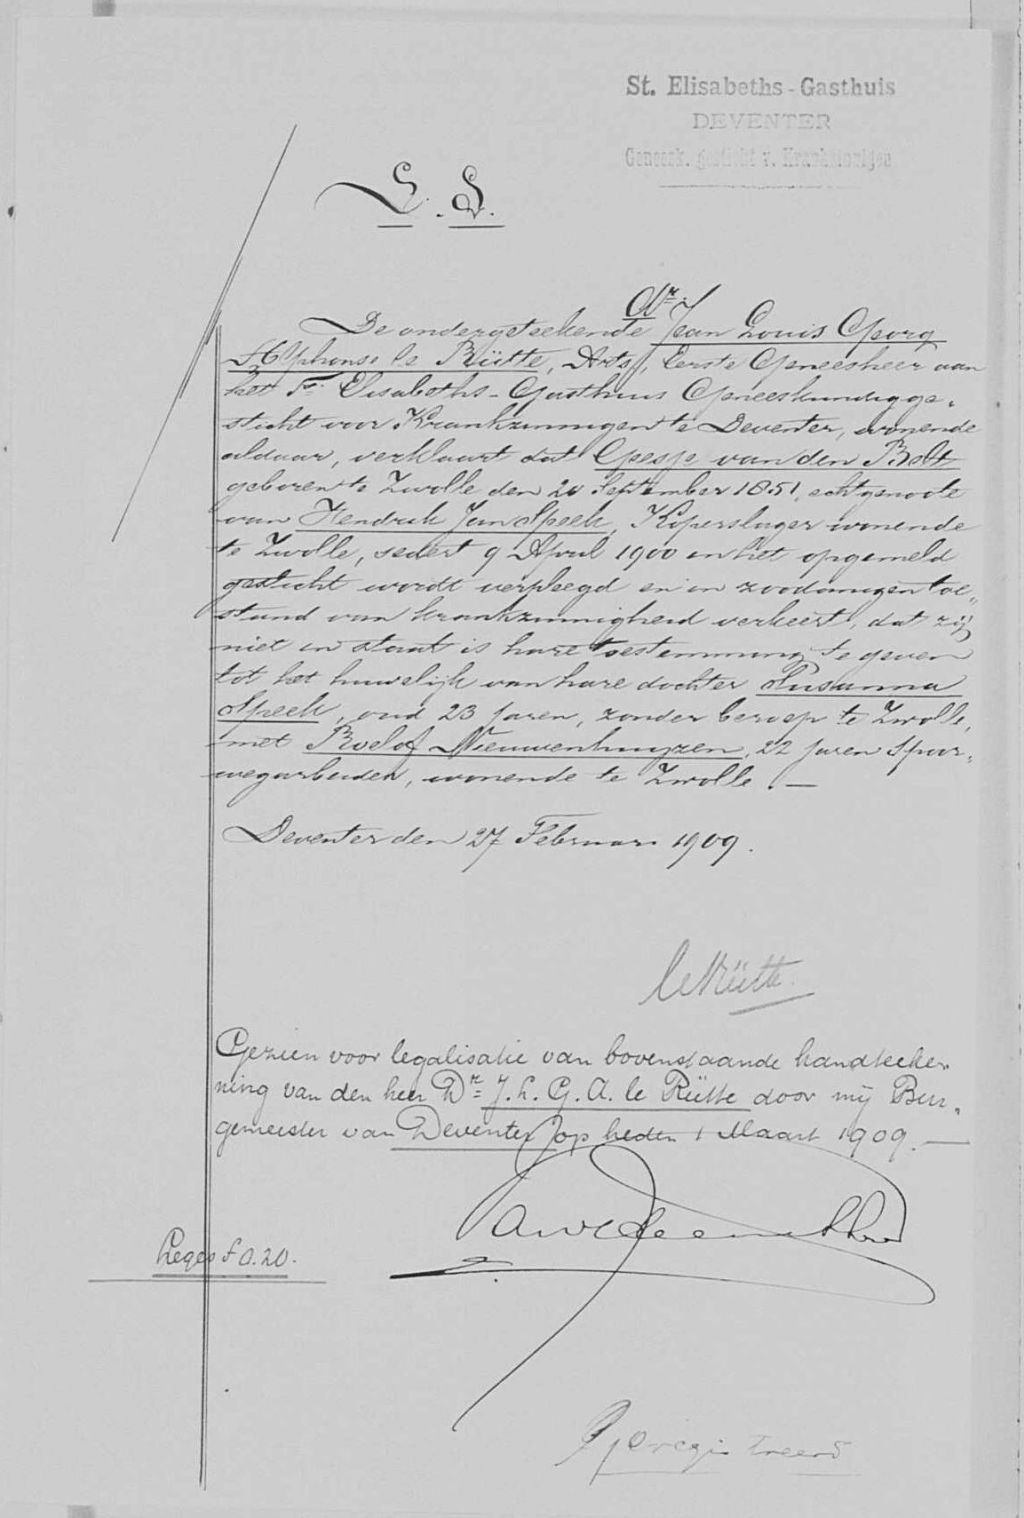 St. Elisabeths-Gasthuis
DEVENTER
Geneesk. gesticht v. Krankzinnigen
L. S.
De ondergeteekende Dr. Jean Louis Georg
Alphonse le Rütte, Arts, Eerste Geneesheer aan
het St. Elisabeths-Gasthuis Geneeskundig ge-
sticht voor Krankzinnigen te Deventer, wonende
aldaar, verklaart dat Gesje van den Belt
geboren te Zwolle den 20 September 1851, echtgenoote
van Hendrik Jan Speek, Koperslager wonende
te Zwolle, sedert 9 April 1900 in het opgemeld
gesticht wordt verpleegd en in zoodanigen toe-
stand van krankzinnigheid verkeert, dat zij
niet in staat is hare toestemming te geven
tot het huwelijk van hare dochter Susanna
Speek, oud 23 jaren, zonder beroep te Zwolle,
met Roelof Nieuwenhuyzen, 22 jaren Spoor-
wegarbeider, wonende te Zwolle. —
Deventer den 27 Februari 1909.
le Rütte.
Gezien voor legalisatie van bovenstaande handteeke-
ning van den heer Dr. J. L. G. A. le Rütte door mij Bur-
gemeester van Deventer op heden 1 Maart 1909. —
Leges f 0.20.
Geregistreerd